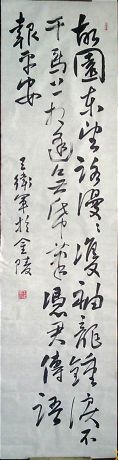 故園东望路漫々雙袖龍鍾淚不
干馬上相逢无紙筆憑君傳語
報平安 王衛軍於金陵